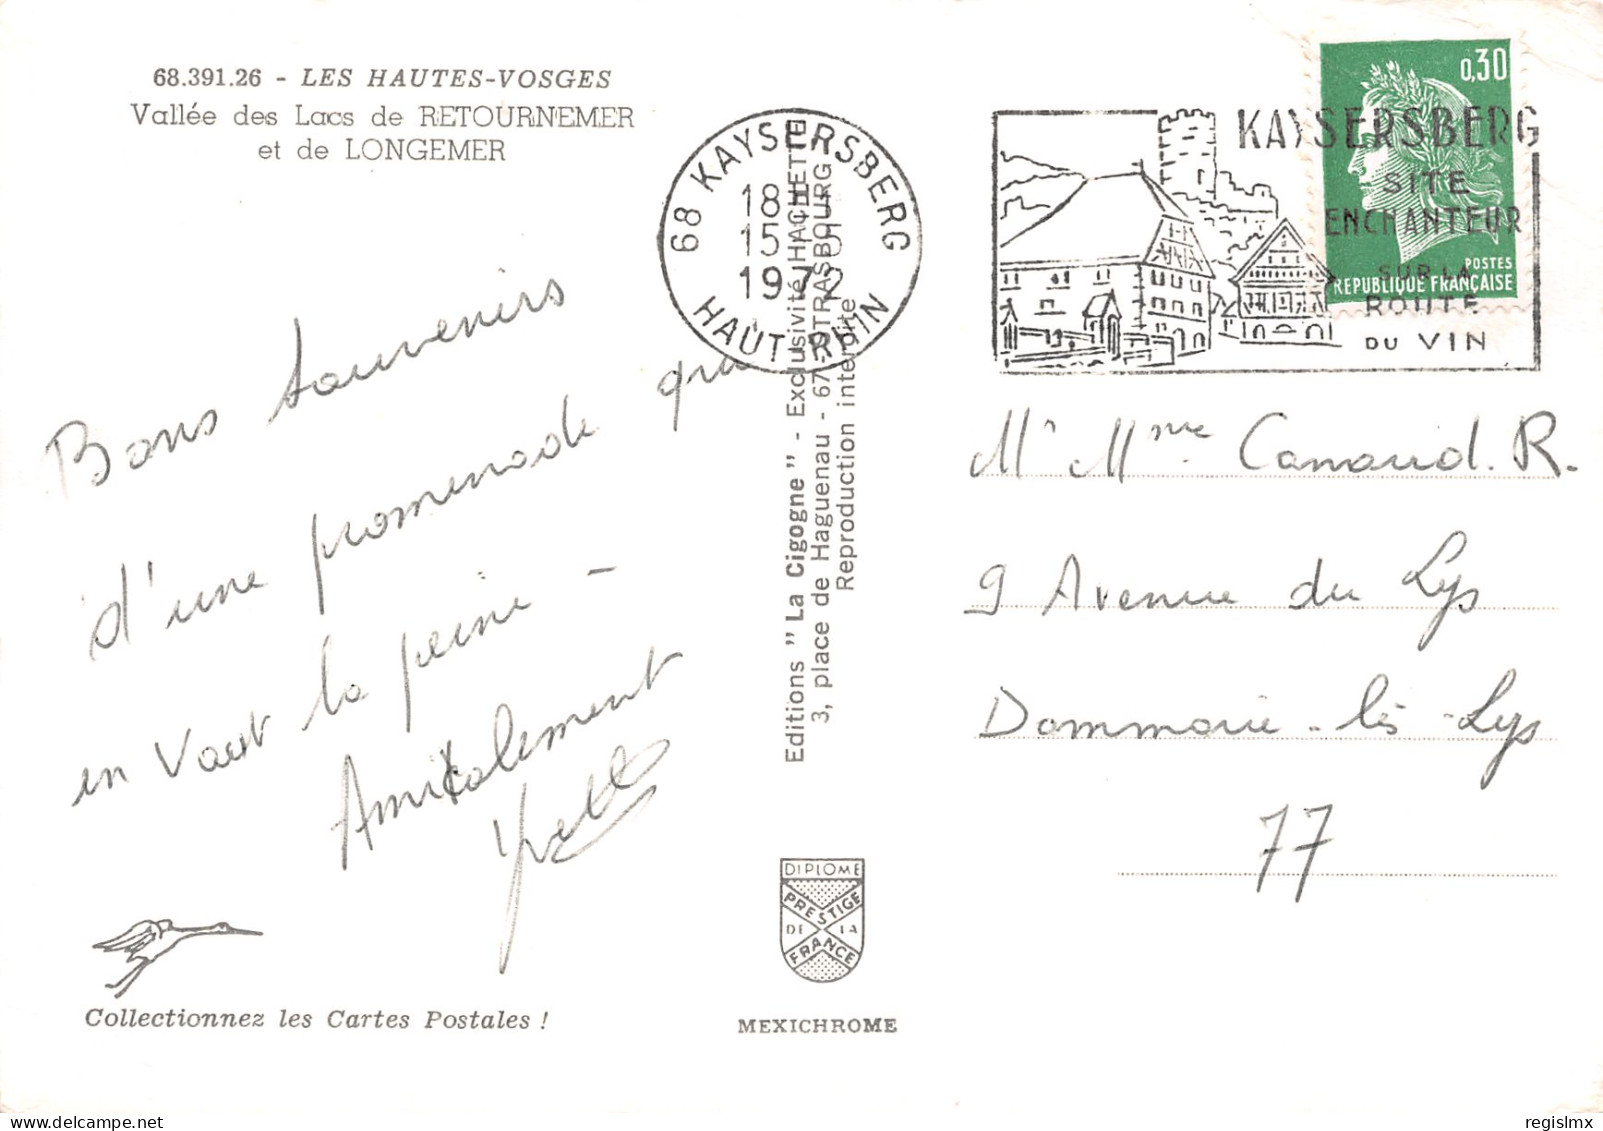 68.391.26 - LES HAUTES-VOSGES
Vallée des Lacs de RETOURNEMER
et de LONGEMER
Bons souvenirs
d'une promenade qui
en vaut la peine -
Amicalement
Collectionnez les Cartes Postales !
68 KAYSERSBERG
18H
15-5
1972
HAUT-RHIN
Editions " La Cigogne " - Exclusivité HACHETTE
3, place de Haguenau - 67-STRASBOURG
Reproduction interdite
DIPLOME
PRESTIGE
DE LA
FRANCE
MEXICHROME
0,30
POSTES
REPUBLIQUE FRANÇAISE
KAYSERSBERG
SITE
ENCHANTEUR
SUR LA
ROUTE
DU VIN
Mr Mme Canaud. R.
9 Avenue du Lys
Dammarie-lès-Lys
77